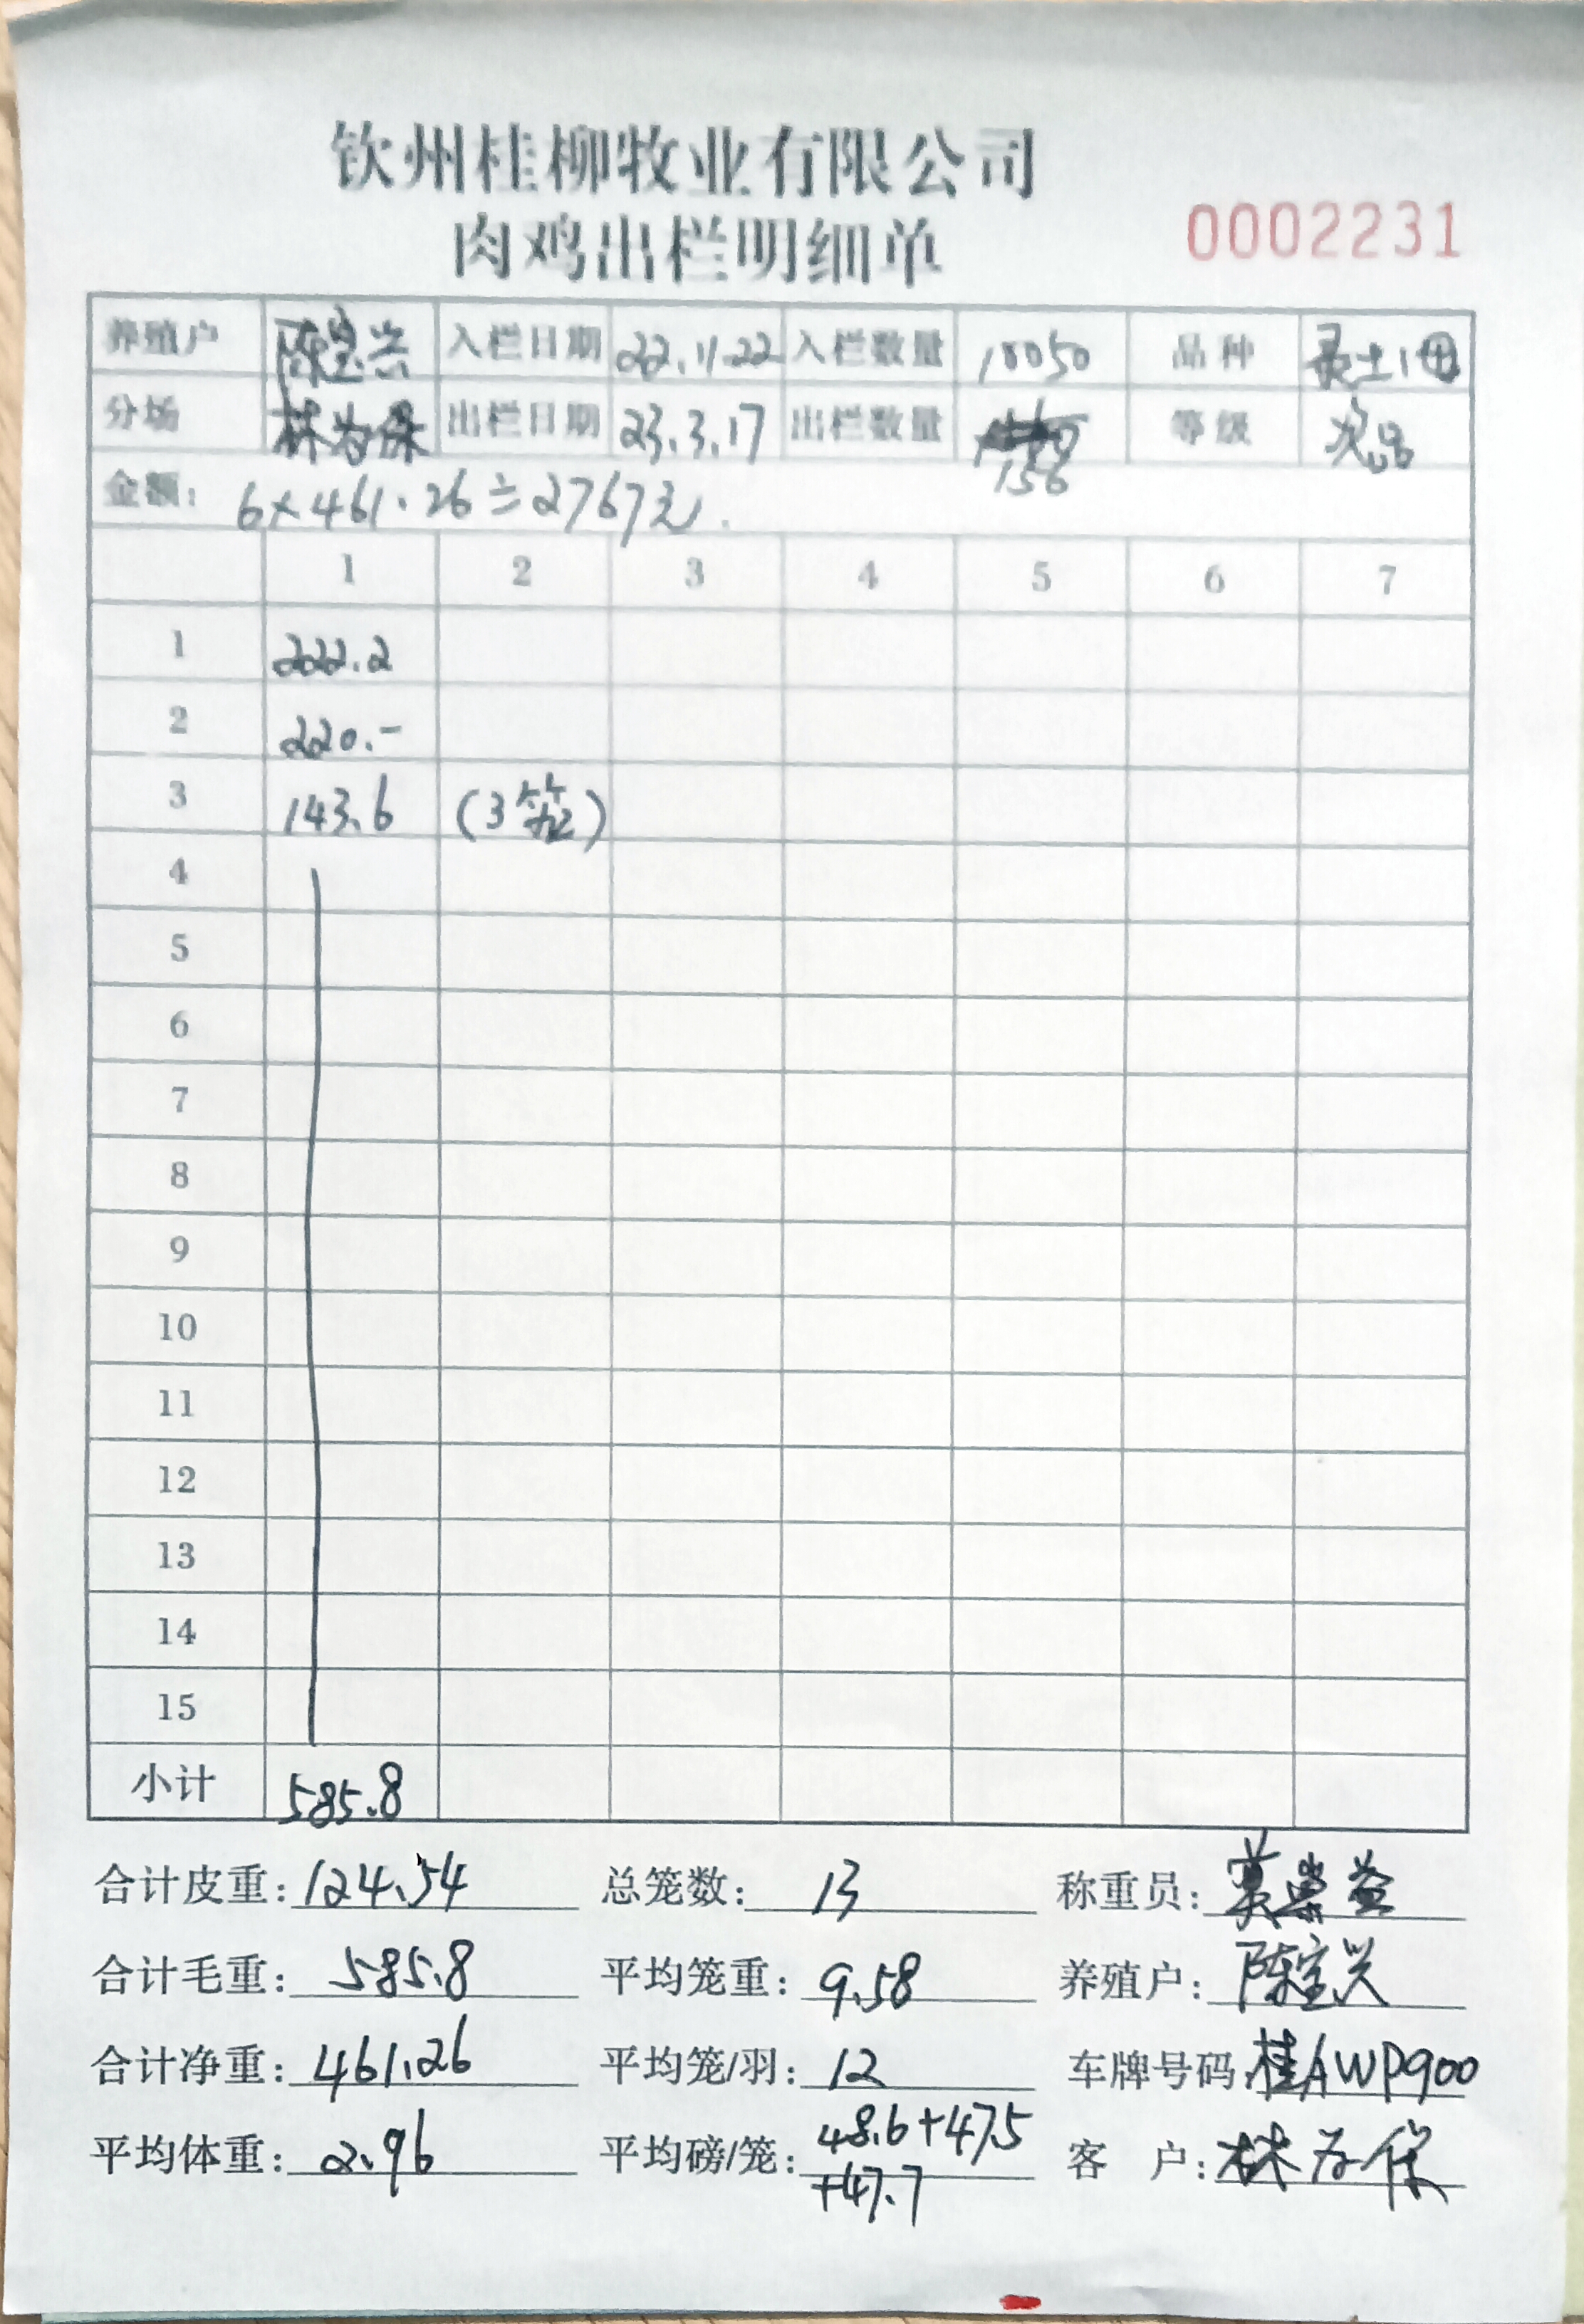 钦州桂柳牧业有限公司
肉鸡出栏明细单
0002231
养殖户 陈宝兴 入栏日期 22.11.22 入栏数量 10050 品种 灵土1母
分场 林为保 出栏日期 23.3.17 出栏数量 156 等级 次品
金额: 6×461.26≑2767元.
1 2 3 4 5 6 7
1 222.2
2 220.-
3 143.6 (3笼)
4
5
6
7
8
9
10
11
12
13
14
15
小计 585.8
合计皮重: 124.54 总笼数: 13 称重员:
合计毛重: 585.8 平均笼重: 9.58 养殖户: 陈宝兴
合计净重: 461.26 平均笼/羽: 12 车牌号码: 桂AWP900
平均体重: 2.96 平均磅/笼: 48.6+47.5 客 户: 林为保
+47.7